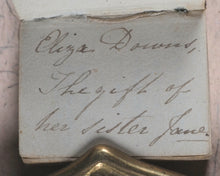 Eliza Downs,
The gift of
her sister Jane.